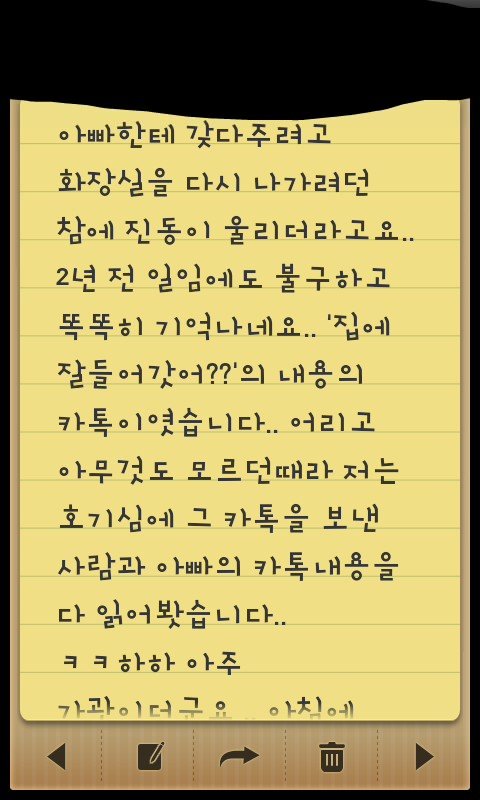 아빠한테 갖다주려고
화장실을 다시 나가려던
참에 진동이 울리더라고요..
2년 전 일임에도 불구하고
똑똑히 기억나네요.. '집에
잘들어갓어??'의 내용의
카톡이엿습니다.. 어리고
아무것도 모르던때라 저는
호기심에 그 카톡을 보낸
사람과 아빠의 카톡내용을
다 읽어봣습니다..
ㅋㅋ하하 아주
가관이더군요.. 아침에